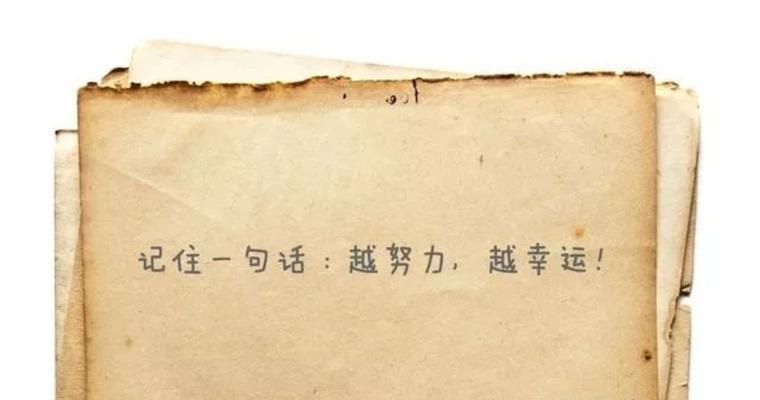 记住一句话：越努力，越幸运！